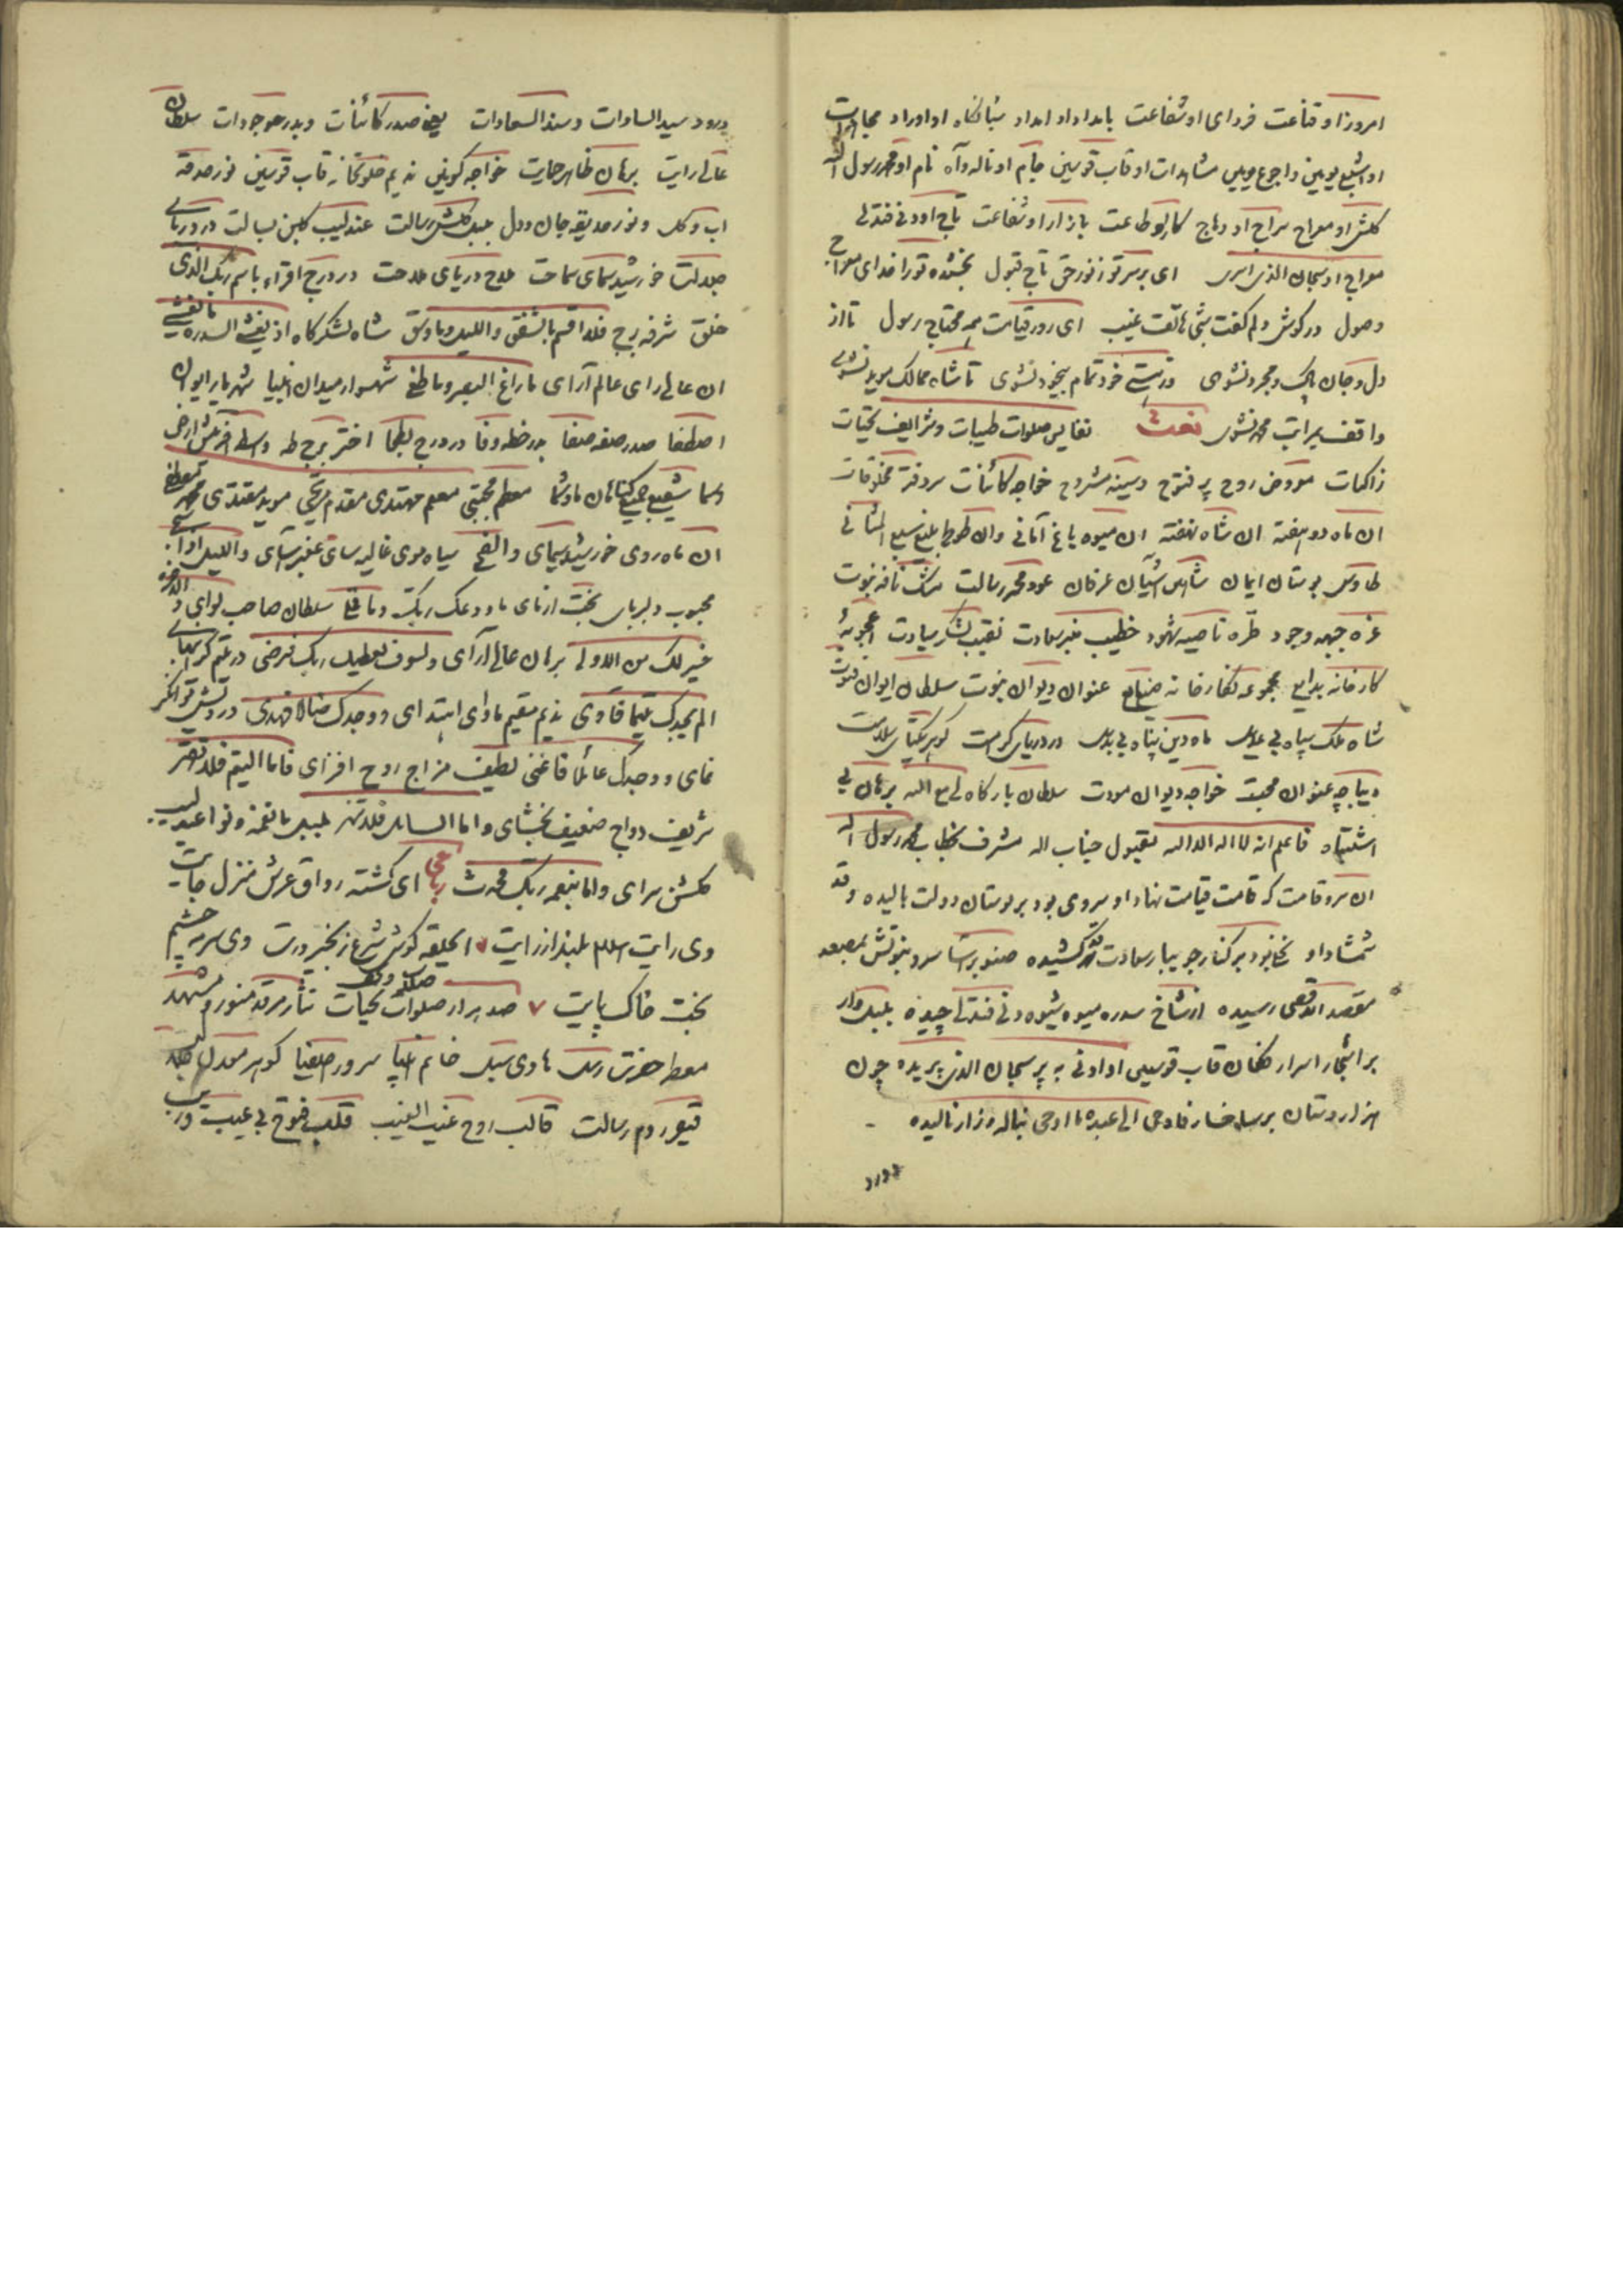 امروز او قناعت فردای او شفاعت بامداد او امداد شبانگاه او اوراد مجاهدات
او اشبع یومین واجوع یومین مشاهدات او قاب قوسین جام او ناله و آه نام او محمد رسول الله
گلشن او معراج سراج او وهاج کار او طاعت بازار او شفاعت تاج او دنی فتدلی
معراج او سبحان الذی اسری ای بر سر تو ز نور حق تاج قبول بخشیده ترا خدای معراج
وصول در گوش دلم گفت شبی هاتف غیب ای روز قیامت همه محتاج رسول تا از
دل و جان پاک و مجرد نشوی در نیستی خود تمام بیخود نشوی تا شاه ممالک موید نشوی
واقف بمراتب محمد نشوی نعت نفایس صلوات طیبات و شرایف تحیات
زاکیات معروض روح پر فتوح و سینه مشروح خواجه کائنات سر دفتر مخلوقات
ان ماه دو هفته ان شاه نهفته ان میوه باغ امانی وان طوطی بلیغ سبع المثانی
طاوس بوستان ایمان شاهین اشیان عرفان عود مجمر رسالت مشک نافه نبوت
غره جبهه وجود طره ناصیه شهود خطیب منبر سعادت نقیب لشکر سیادت اعجوبهٔ
کارخانه بدایع مجموعه نگارخانه صنایع عنوان دیوان نبوت سلطان ایوان فتوت
شاه ملک سپاه بی علل ماه دین پناه بی بدل در دریای کرامت گوهر یکتای سلامت
دیباچه عنوان محبت خواجه دیوان مودت سلطان بارگاه لی مع الله برهان بی
اشتباه فاعلم انه لا اله الا الله مقبول جناب اله مشرف بخطاب محمد رسول الله
ان سرو قامت که قامت قیامت نهاد او سروی بود بر بوستان دولت بالیده و قد
شمشاد او نخلی بود بر کنار جویبار سعادت سر کشیده صنوبر آسا سرو نبوتش بمصعد
مقصد الاقصی رسیده از شاخ سدره میوه شیوه دنی فتدلی چیده بلبل وار
بر اشجار اسرار فکان قاب قوسین او ادنی به پر سبحان الذی پریده چون
هزار دستان بر شاخسار فاوحی الی عبده ما اوحی بناله و زار نالیده
درود
درود سید السادات و سند السعادات یعنی صدر کائنات و بدر موجودات سلطان
عالی رایت برهان ظاهر حمایت خواجه کونین ندیم خلوتخانه قاب قوسین نور حدقه
اب و گل و نور حدیقه جان و دل بلبل گلشن رسالت عندلیب گلبن بسالت در دریای
جلالت خورشید سمای سماحت ملاح دریای ملاحت در درج اقراء باسم ربک الذی
خلق شرفه برج فلا اقسم بالشفق واللیل وما وسق شاه لشکرگاه اذ یغشی السدره ما یغشی
ان عالی رای عالم آرای ما زاغ البصر وما طغی شهسوار میدان انبیا شهریار ایوان
اصطفا صدر صفه صفا بدر خطه وفا در درج بطحا اختر برج طه واسطه آفرینش ارض
وسما شفیع جمیع گناهان ما و شما معظم مجتبی معلم مهتدی مقدم مرتجی موید مقتدی محمد مصطفی
ان ماه روی خورشید سیمای والضحی سیاه موی غالیه سای عنبر آسای واللیل اذا سجی
محبوب دلربای بخت ازمای ما ودعک ربک وما قلی سلطان صاحب لوای وللاخره
خیر لک من الاولی برهان عالم آرای ولسوف یعطیک ربک فترضی در یتیم گرانبهای
الم یجدک یتیما فآوی ندیم مقیم ماوای ابتدای ووجدک ضالا فهدی درویش توانگر
نمای ووجدک عائلا فاغنی لطیف مزاج روح افزای فاما الیتیم فلا تقهر
شریف رواج ضعیف بخشای واما السائل فلا تنهر بلبل با نغمه و نوا عندلیب
گلشن سرای واما بنعمه ربک فحدث رباعی ای گشته رواق عرش منزل جایت
وی رایت اسلام بلند از رایت ای حلقه گوش شرع زنجیر درت وی سرمه چشم
بخت خاک پایت صد هزار صلوات صلات و تحف تحیات نثار مرقد منور و مشهد
معطر حضرت رسل هادی سبل خاتم انبیا سرور اصفیا گوهر معدن
قیصر روم رسالت قالب روح غیب الغیب قلب فتوح بی عیب و ریب